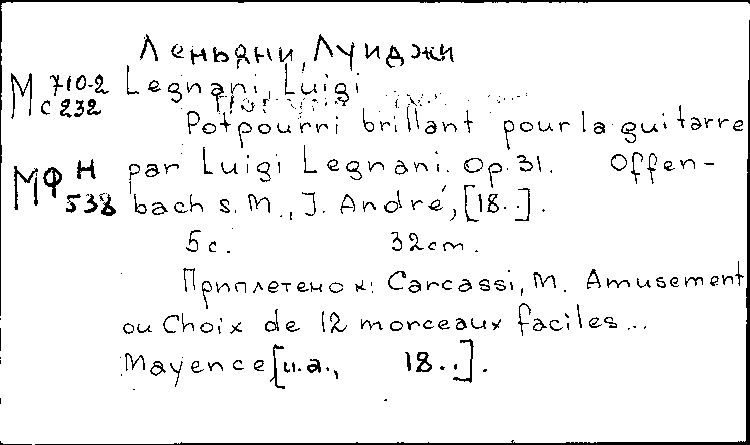 Леньяни, Луиджи
М 710-2 Legnani, Luigi
с 232
Potpourri brillant pour la guitarre
МФ Н par Luigi Legnani. Op. 31. Offen-
538 bach s. M., J. André, [18..].
5 c. 32 cm.
Приплетено к: Carcassi, M. Amusement
ou Choix de 12 morceaux faciles...
Mayence [u.a., 18..].